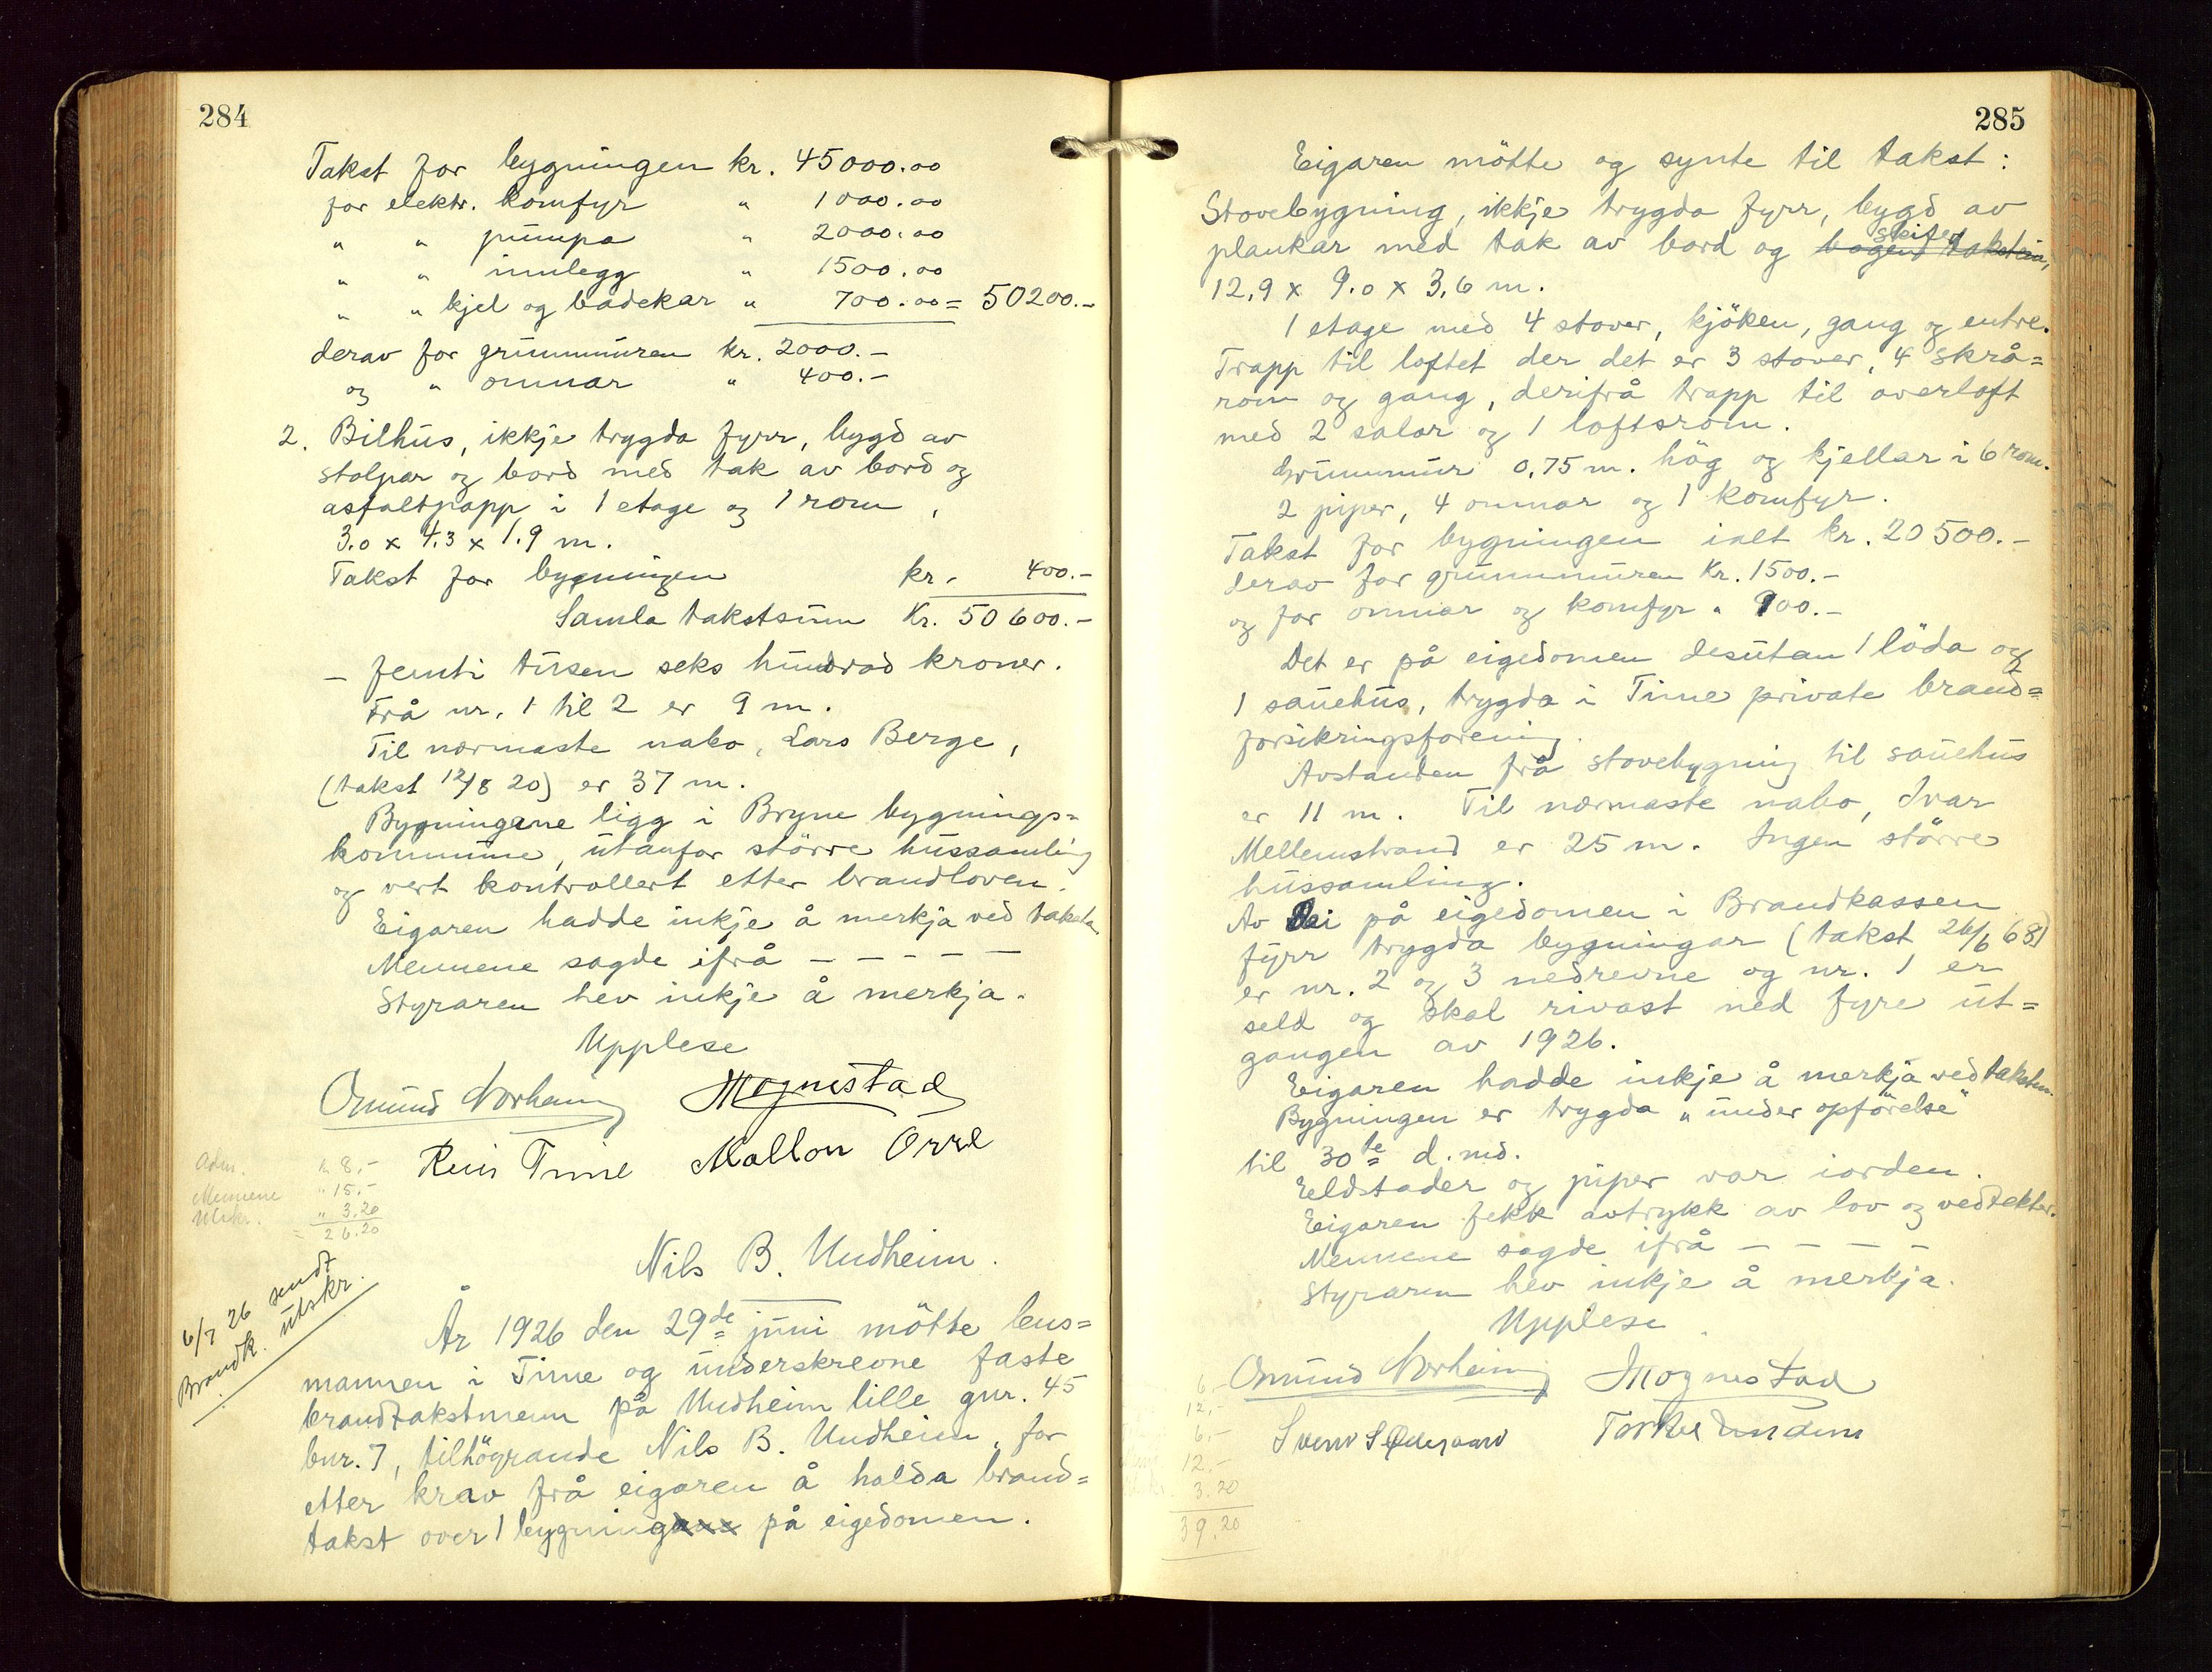 284
Takst for bygningen kr. 45000.00
for elektr. komfyr " 1000.00
" " pumpa " 2000.00
" " innlegg " 1500.00
" " kjel og badekar " 700.00 = 50200.-
derav for grunnmuren kr. 2000.-
og " omnar " 400.-
2. Bilhus, ikkje trygda fyrr, bygd av
stolpar og bord med tak av bord og
asfaltpapp i 1 etage og 1 rom,
3.0 x 4.3 x 1.9 m.
Takst for bygningen kr. 400.-
Samla takstsum Kr. 50600.-
- femti tusen seks hundrad kroner.
Frå nr. 1 til 2 er 9 m.
Til nærmaste nabo, Lars Berge,
(takst 12/8 20) er 37 m.
Bygningane ligg i Bryne bygnings=
kommune, utanfor större hussamling
og vert kontrollert etter brandloven.
Eigaren hadde inkje å merkja ved taksta.
Mennene sagde ifrå - - - - -
Styraren hev inkje å merkja.
Upplese
Omund Norheim Mognestad
Rein Time Mallon Orre
Adm. kr 8.-
Mennene " 15.-
Utskr. " 3.20
= 26.20
6/7 26 sendt
Brandk. utskr.
Nils B. Undheim.
År 1926 den 29de juni mötte lens=
mannen i Time og underskrevne faste
brandtakstmenn på Undheim lille gnr. 45
bnr. 7, tilhöyrande Nils B. Undheim, for
etter krav frå eigaren å halda brand=
takst over 1 bygning på eigedomen.
285
Eigaren mötte og synte til takst:
Stovebygning, ikkje trygda fyrr, bygd av
skifer
plankar med tak av bord og bogen takstein,
12,9 x 9.0 x 3,6 m.
1 etage med 4 stover, kjöken, gang og entre.
Trapp til loftet der det er 3 stover, 4 skrå=
rom og gang, derifrå trapp til overloft
med 2 salar og 1 loftsrom.
Grunnmur 0,75 m. hög og kjellar i 6 rom.
2 piper, 4 omnar og 1 komfyr.
Takst for bygningen ialt kr. 20500.-
derav for grunnmuren Kr. 1500.-
og for omnar og komfyr " 900.-
Det er på eigedomen desutan 1 löda og
1 sauehus, trygda i Time private brand=
forsikringsforening.
Avstanden frå stovebygning til sauehus
er 11 m. Til nærmaste nabo, Ivar
Mellemstrand er 25 m. Ingen större
hussamling.
Av dei på eigedomen i Brandkassen
fyrr trygda bygningar (takst 26/6 68)
er nr. 2 og 3 nedrevne og nr. 1 er
seld og skal rivast ned fyre ut=
gangen av 1926.
Eigaren hadde inkje å merkja ved taksten.
Bygningen er trygda "under opförelse"
til 30te d. md.
Eldstader og piper var iorden.
Eigaren fekk avtrykk av lov og vedtekter.
Mennene sagde ifrå - - - -
Styraren hev inkje å merkja.
Upplese
Omund Norheim Mognestad
Torkel Undem
6.-
12.-
6.-
12.-
3.20
39.20